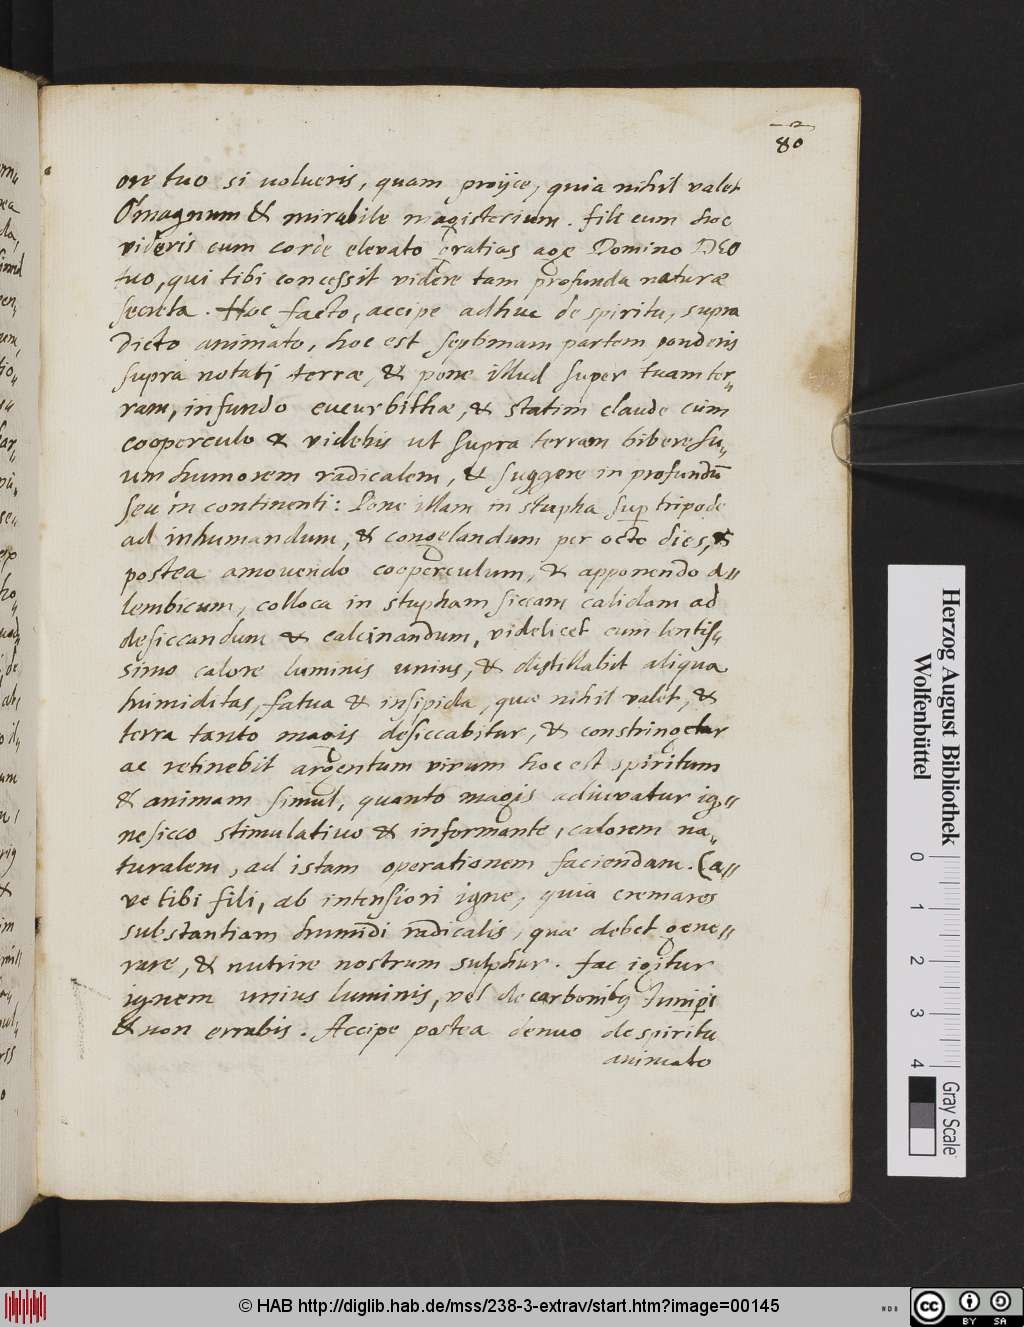 80
ore tuo si volueris, quam proijce, quia nihil valet
O magnum & mirabile magisterium. fili cum hoc
videris cum corde elevato gratias age Domino DEO
tuo, qui tibi concessit videre tam profunda naturæ
secreta. Hoc facto, accipe adhuc de spiritu, supra
dicto animato, hoc est septimam partem ponderis
supra notati terræ, & pone illud super tuam ter„
ram, in fundo cucurbithæ, & statim claude cum
cooperculo & videbis ut supra terram bibere su„
um humorem radicalem, & suggere in profundū
seu in continenti: Pone illam in stupha sup tripode
ad inhumandum, & congelandum per octo dies, &
postea amovendo cooperculum, & apponendo a„
lembicum, colloca in stupham siccam calidam ad
desiccandum & calcinandum, videlicet cum lentis„
simo calore luminis unius, & distillabit aliqua
humiditas, fatua & insipida, quæ nihil valet, &
terra tanto magis desiccabitur, & constringetur
ac retinebit argentum vivum hoc est spiritum
& animam simul, quanto magis adiuvatur ig„
ne sicco stimulativo & informante, calorem na„
turalem, ad istam operationem faciendam. Ca„
ve tibi fili, ab intensiori igne, quia cremares
substantiam humidi radicalis, quæ debet gene„
rare, & nutrire nostrum sulphur. fac igitur
ignem unius luminis, vel de carbonibg Juniperis
& non errabis. Accipe postea denuo de spiritu
animato
Herzog August Bibliothek
Wolfenbüttel
0 1 2 3 4
Gray Scale
© HAB http://diglib.hab.de/mss/238-3-extrav/start.htm?image=00145
cc BY SA